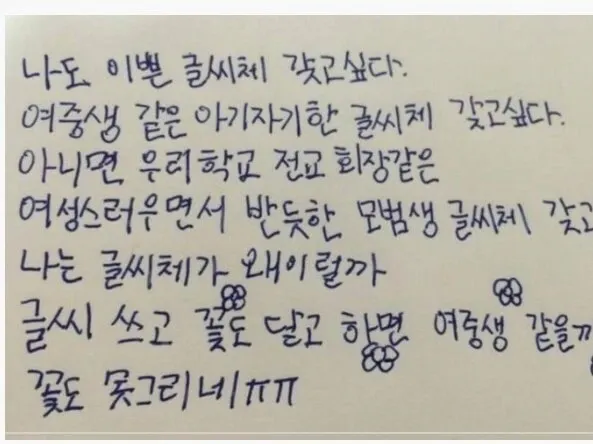 나도 이쁜 글씨체 갖고싶다.
여중생 같은 아기자기한 글씨체 갖고싶다.
아니면 우리학교 전교 회장같은
여성스러우면서 반듯한 모범생 글씨체 갖고
나는 글씨체가 왜이럴까
글씨 쓰고 꽃도 달고 하면 여중생 같을까
꽃도 못그리네ㅠㅠ